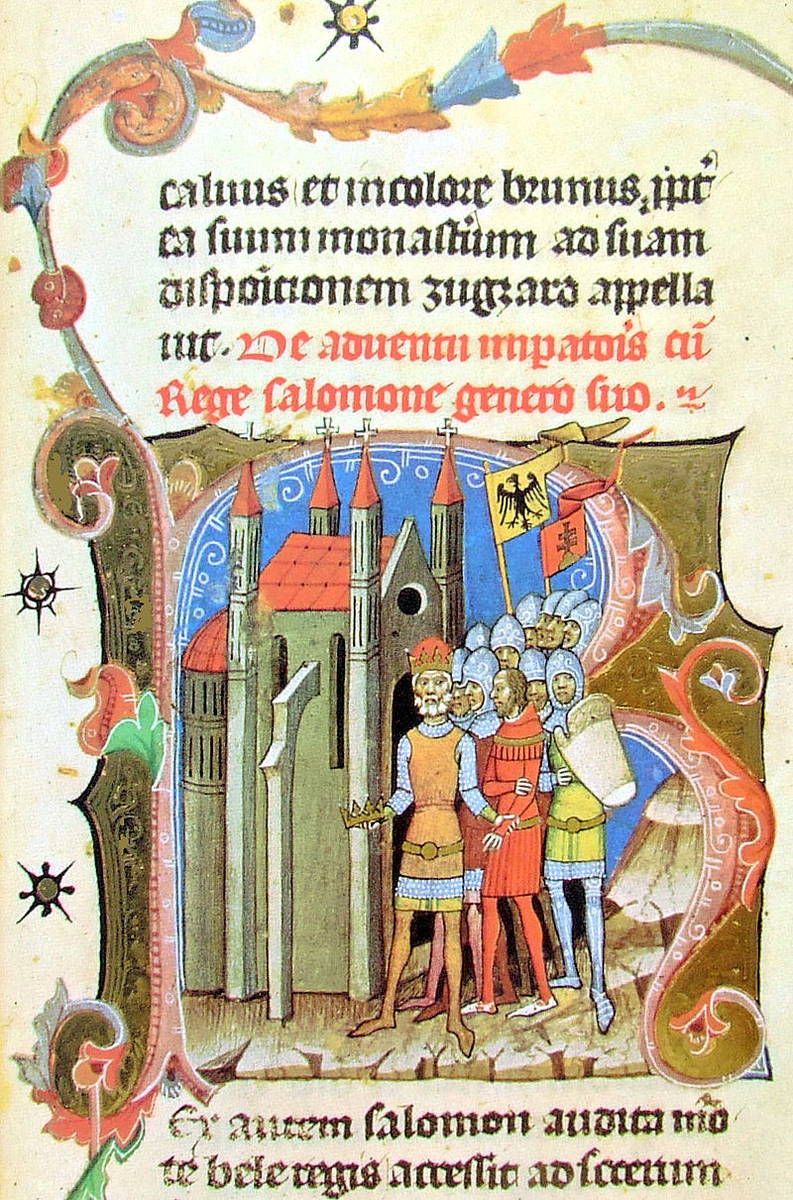 caluus et in colore brunus, ip̄t
ea suum monast̄ium ad suam
dispōicionem zugzard appella
uit. De aduentu imp̄atōis cū
Rege salomone genero suo.
Ex autem salomon audita mō
te bele regis accessit ad socerum